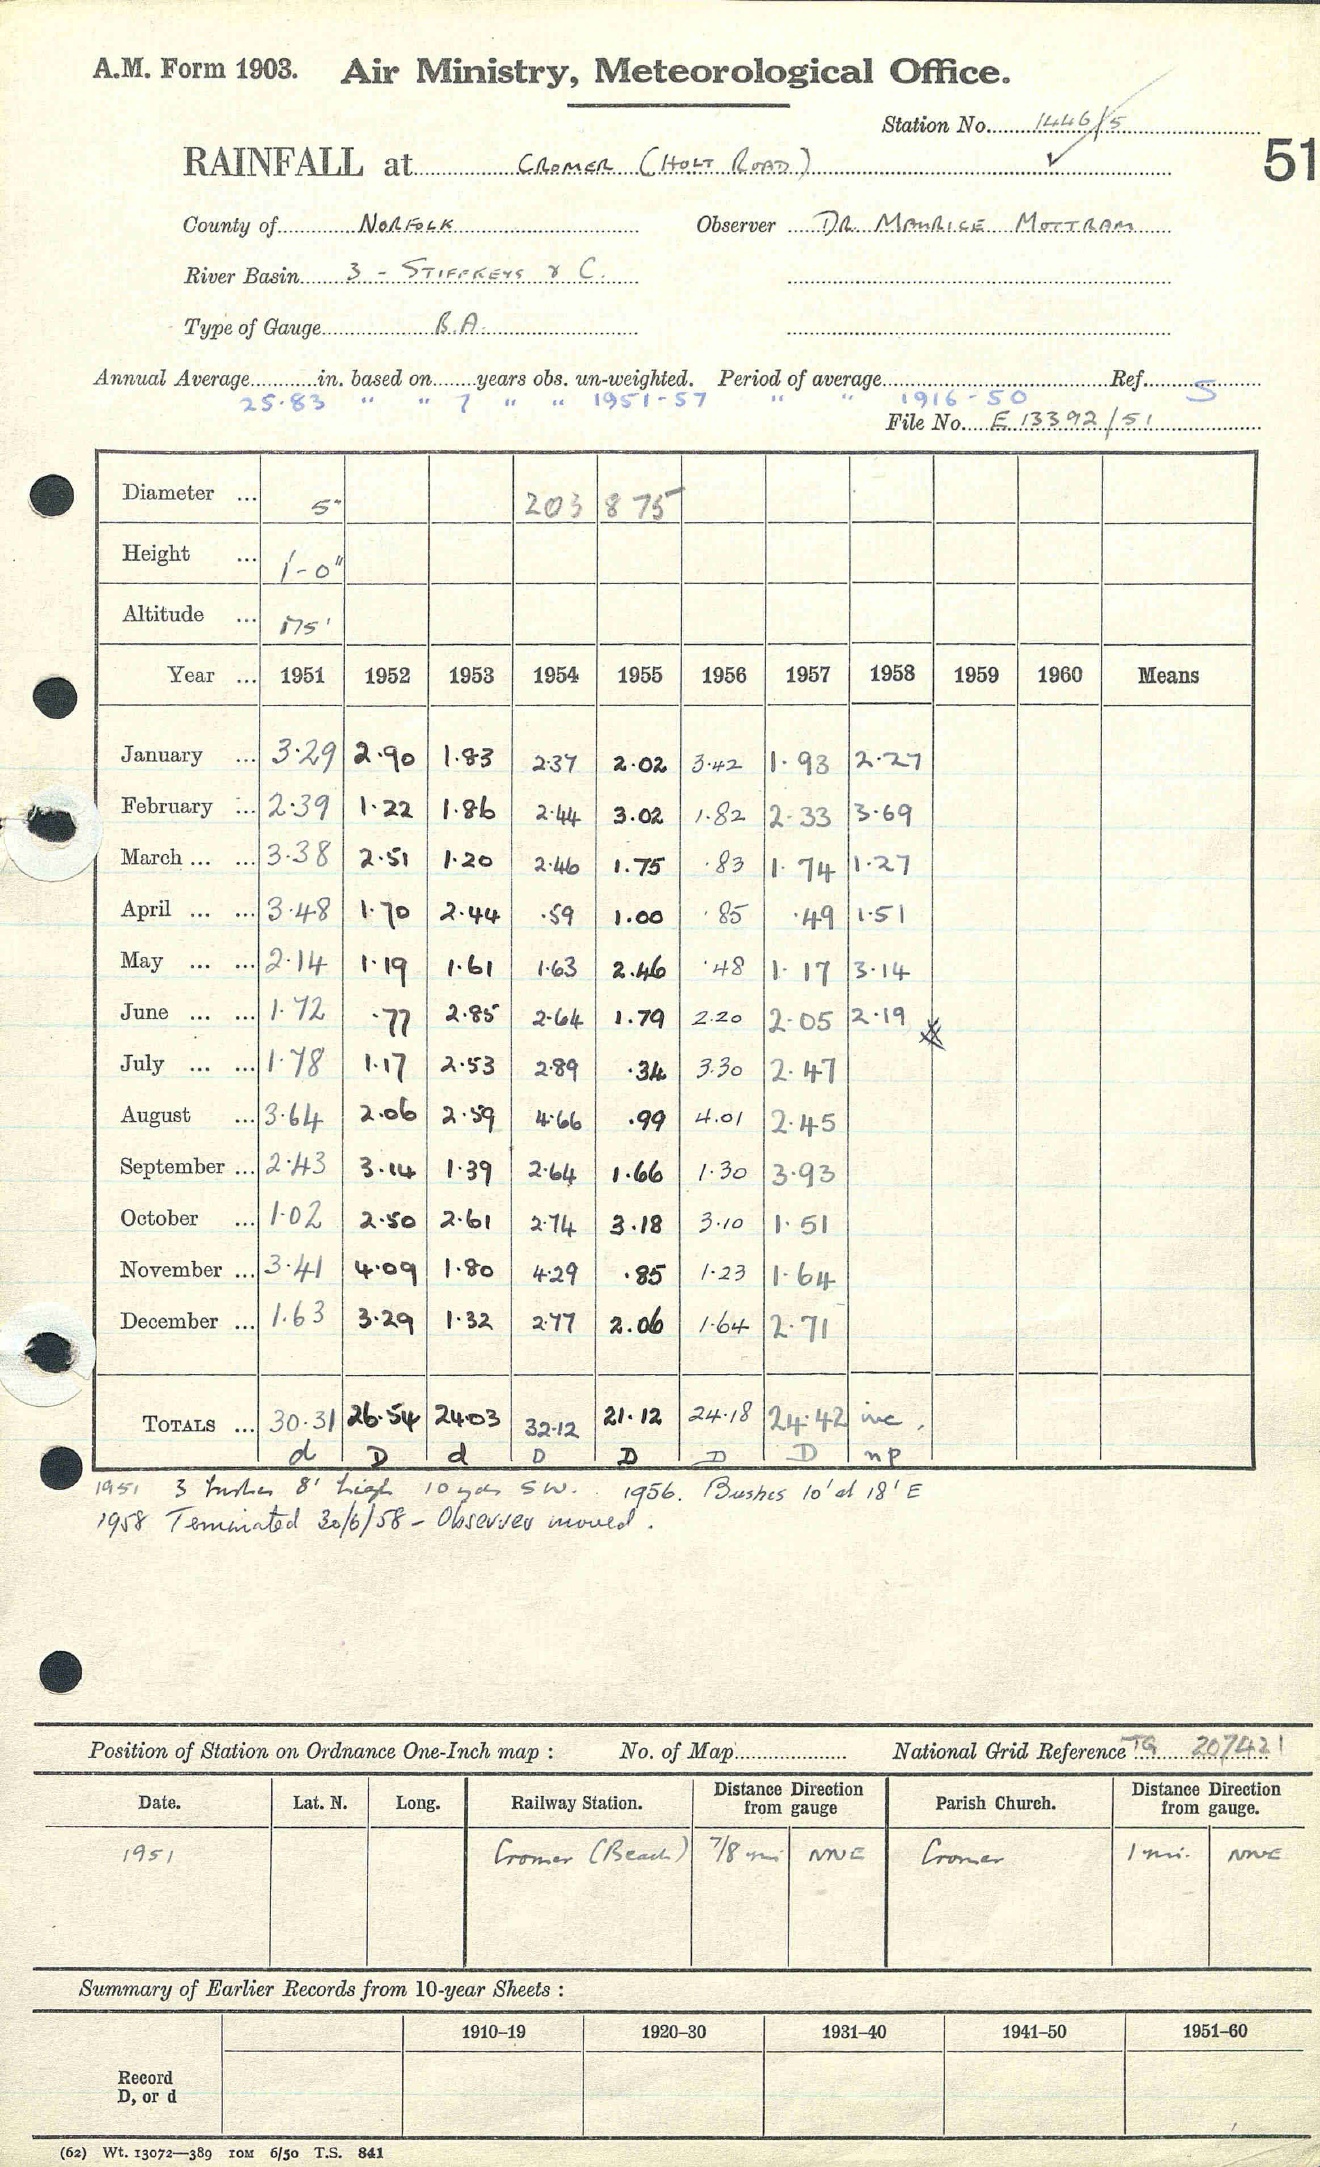 A.M. Form 1903. Air Ministry, Meteorological Office.
Station No. 1446/5
RAINFALL at CROMER (HOLT ROAD)
51
County of NORFOLK Observer DR. MAURICE MOTTRAM
River Basin 3 - STIFFKEYS & C.
Type of Gauge B.A.
Annual Average in. based on years obs. un-weighted. Period of average Ref. S
25.83 " " 7 " " 1951-57 " " 1916-50
File No. E 13392/51
Diameter ... 5" 203 875
Height ... 1'-0"
Altitude ... 175'
Year ... 1951 1952 1953 1954 1955 1956 1957 1958 1959 1960 Means
January ... 3.29 2.90 1.83 2.37 2.02 3.42 1.93 2.27
February ... 2.39 1.22 1.86 2.44 3.02 1.82 2.33 3.69
March ... ... 3.38 2.51 1.20 2.46 1.75 .83 1.74 1.27
April ... ... 3.48 1.70 2.44 .59 1.00 .85 .49 1.51
May ... ... 2.14 1.19 1.61 1.63 2.46 .48 1.17 3.14
June ... ... 1.72 .77 2.85 2.64 1.79 2.20 2.05 2.19
July ... ... 1.78 1.17 2.53 2.89 .34 3.30 2.47
August ... 3.64 2.06 2.59 4.66 .99 4.01 2.45
September ... 2.43 3.14 1.39 2.64 1.66 1.30 3.93
October ... 1.02 2.50 2.61 2.74 3.18 3.10 1.51
November ... 3.41 4.09 1.80 4.29 .85 1.23 1.64
December ... 1.63 3.29 1.32 2.77 2.06 1.64 2.71
TOTALS ... 30.31 26.54 24.03 32.12 21.12 24.18 24.42 inc.
d D d D D D D np
1951 3 bushes 8' high 10 yds SW. 1956. Bushes 10' at 18' E
1958 Terminated 30/6/58 - Observer moved.
Position of Station on Ordnance One-Inch map : No. of Map National Grid Reference TG 207421
Date. Lat. N. Long. Railway Station. Distance Direction from gauge Parish Church. Distance Direction from gauge.
1951 Cromer (Beach) 7/8 mi NNE Cromer 1 mi. NNE
Summary of Earlier Records from 10-year Sheets :
1910–19 1920–30 1931–40 1941–50 1951–60
Record
D, or d
(62) Wt. 13072—389 10M 6/50 T.S. 841